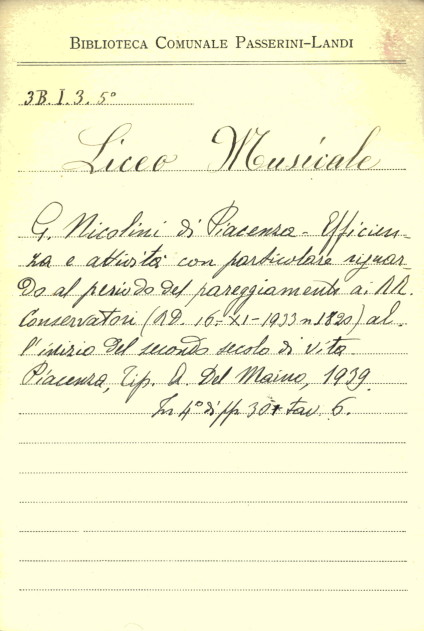 BIBLIOTECA COMUNALE PASSERINI-LANDI
3B. I. 3. 5°
Liceo Musicale
G. Nicolini di Piacenza - Efficien-
za e attività con particolare riguar-
do al periodo del pareggiamento ai RR.
Conservatori (RD. 16-XI-1933 n. 1820) al-
l'inizio del secondo secolo di vita.
Piacenza, Tip. A. Del Maino, 1939.
In 4° di pp 30+ tav. 6.